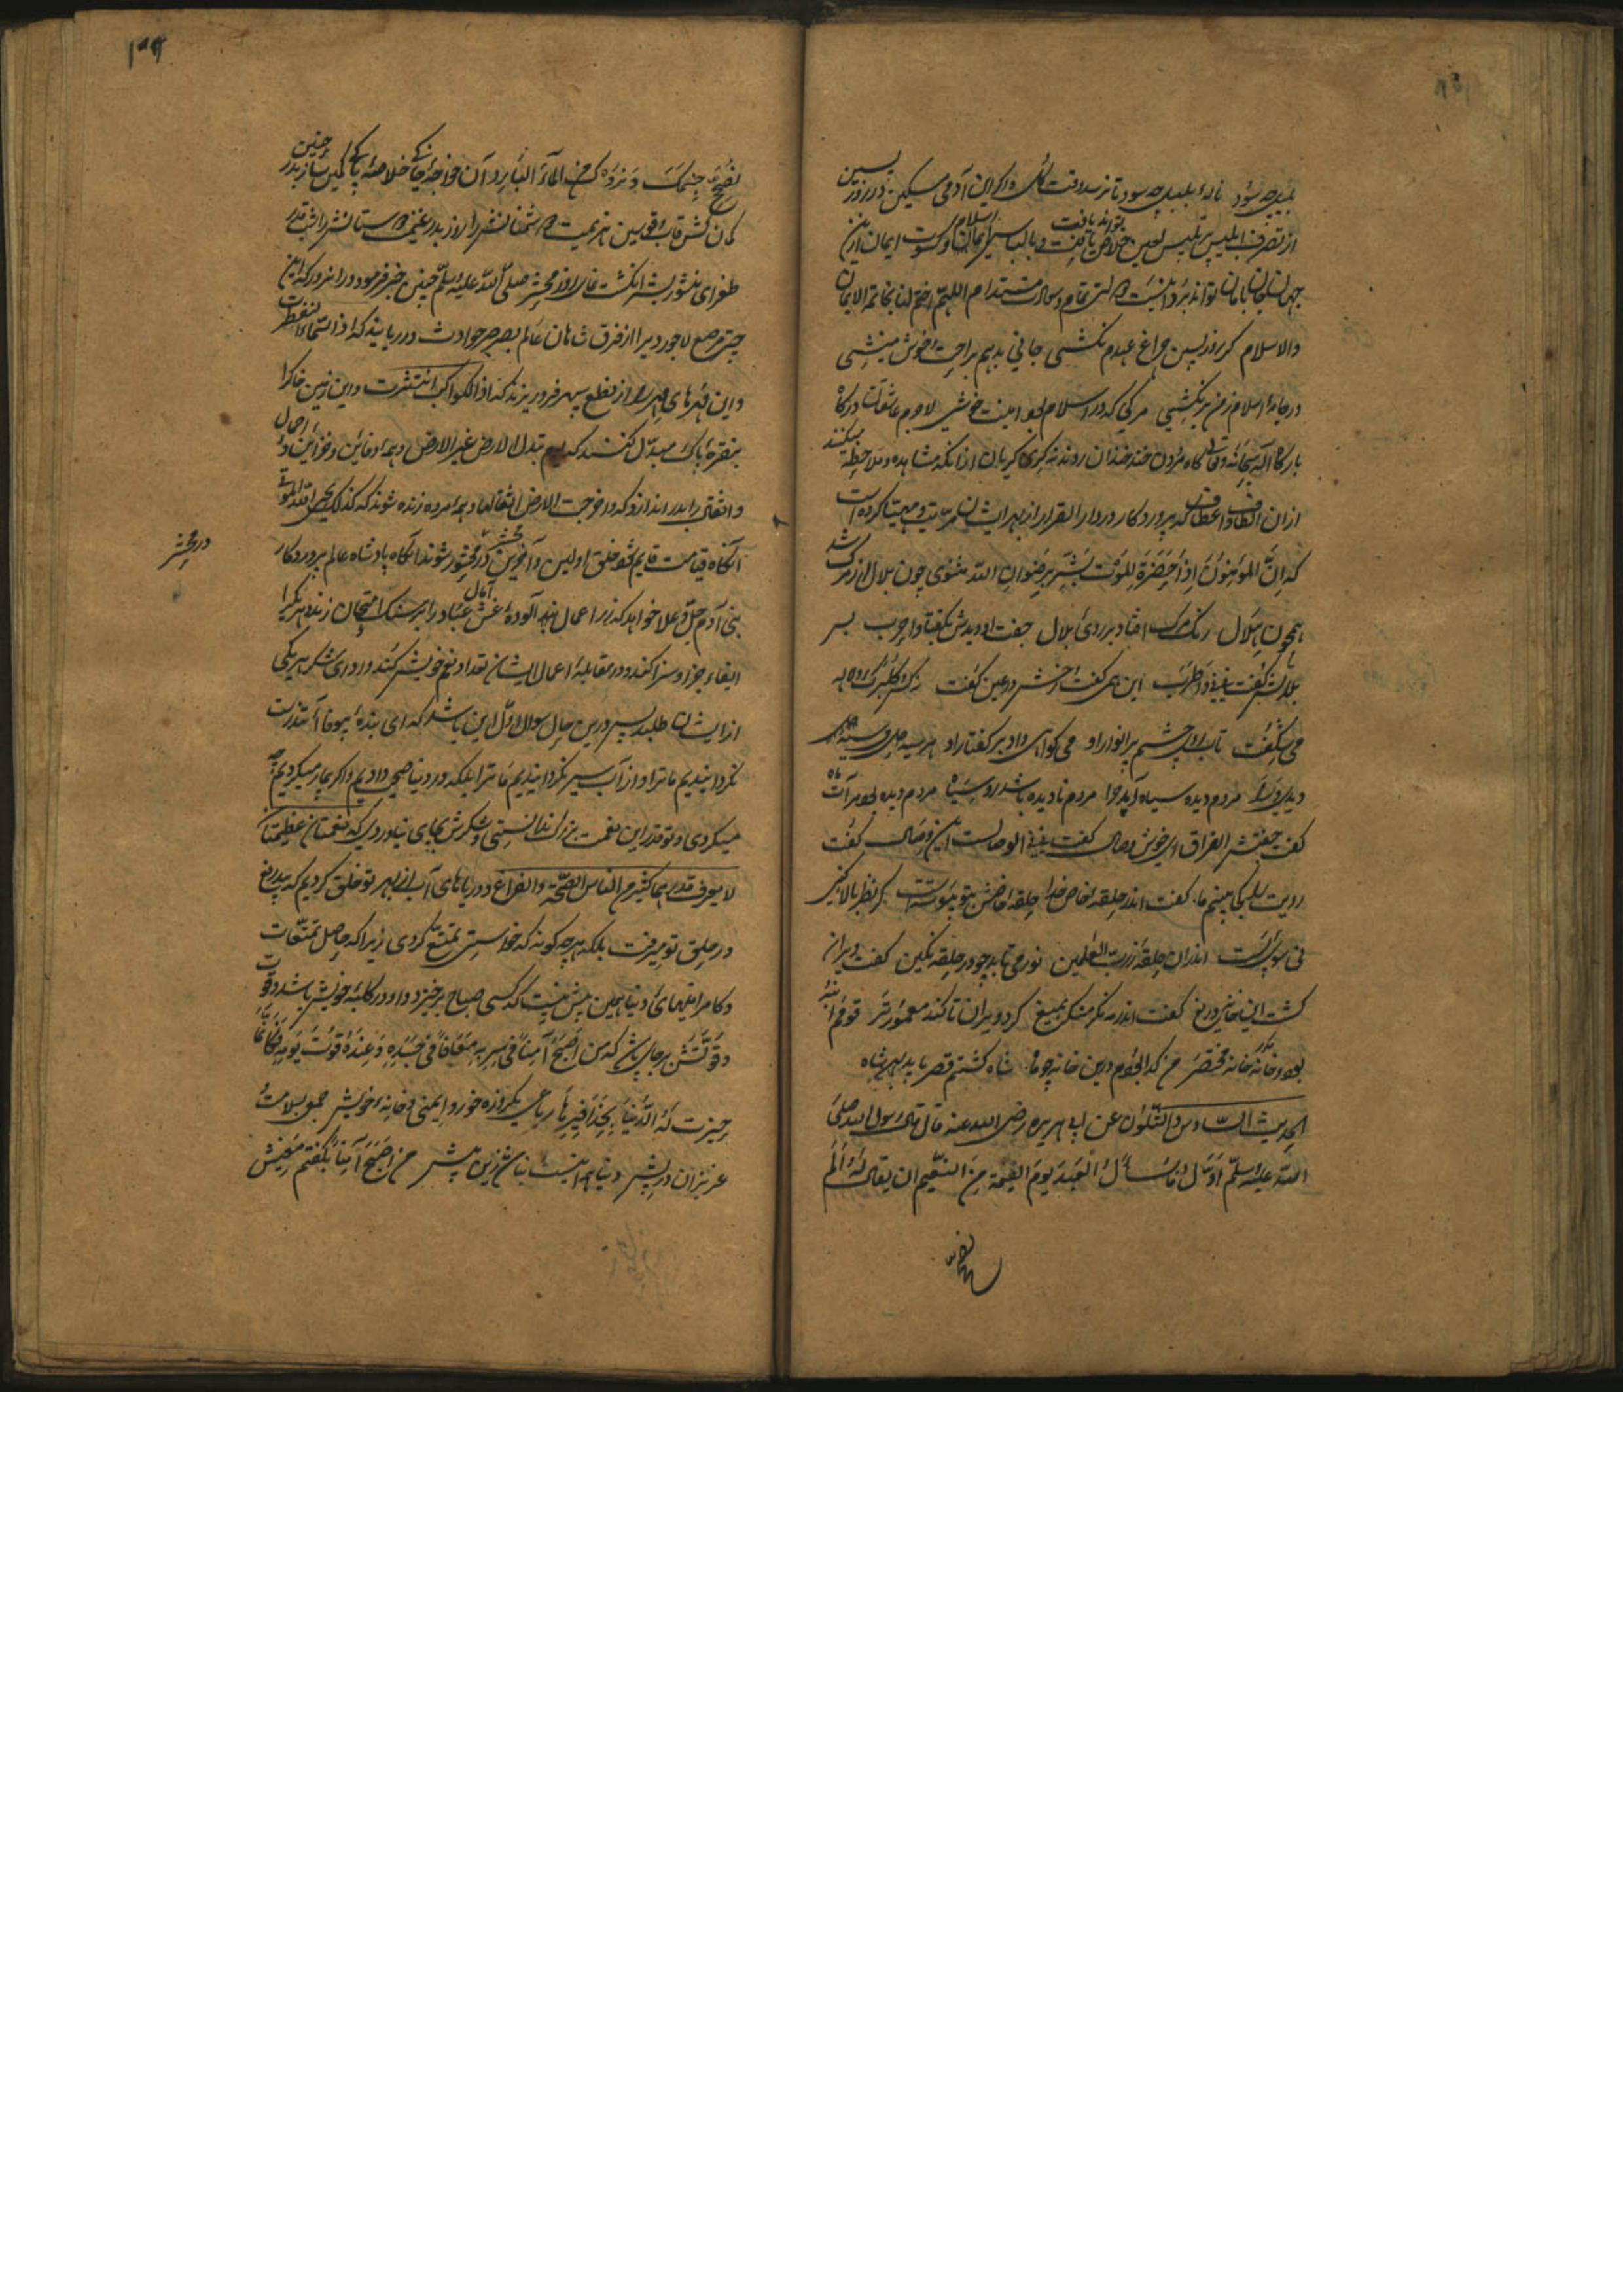 بلبل چه سود ناله بلبل چه سود تا نرسد وقت گل و اگر این آدمی مسکین در روز پسین
از تصرف ابلیس پر تلبیس لعین خلاص تواند یافت و با لباس اسلام و کسوت ایمان ازین
جهان بدان جهان تواند برد اینت دولتی تمام و سعادت مستدام اللهم اختم لنا بخاتمة الایمان
والاسلام گر روز پسین چراغ عهدم نکشی جانی بدهم براحت و خوش منشی
در جامه اسلام ز من بر نکشی مرگی که در اسلام بود اینت خوشی لاجرم عاشقان درگاه
بارگاه اله سبحانه وتعالی گاه مردن خندخندان روند نه گری گریان از آنکه مشاهده و ملاحظه میکنند
ازان الطاف و اعطاف که پروردگار در دار القرار از بهر ایشان مرتب و مهیا کرده است
که ان المؤمنون اذا حضره الموت بشر برضوان الله مثنوی چون بلال از مرگ شد
همچون هلال رنگ مرگ افتاد بر روی بلال جفت او دیدش بگفتا واحرب بس
بلالش گفت نی نی واطرب این همی گفت و رخش در عین گفت نرگس و گلبرگ و لاله
می شگفت تاب رو و چشم پر انوار او می گواهی داد بر گفتار او هر سیه دل می سیه
دیدی ورا مردم دیده سیاه آید چرا مردم نادیده باشد رو سیاه مردم دیده بود مرآت ماه
گفت جفتش الفراق ای خوش وصال گفت نی نی الوصالست این وصال گفت
رویت را کجا بینیم ما گفت اندر حلقه خاص خدا حلقه خاصش بتو پیوسته است گر نظر بالا کنی
نی سوی پست اندران حلقه ز رب العلمین نور می تابد چو در حلقه نگین گفت ویران
گشت این خانه دریغ گفت اندر مه نگر منگر بمیغ کرد ویران تا کند معمورتر قومم انبه
بود و خانه مختصر من گدا بودم درین خانه چو چاه شاه گشتم قصر باید بهر شاه
الحدیث السادس والثلثون عن ابی هریره رضی الله عنه قال قال رسول الله صلی
الله علیه وسلم اول ما یسأل العبد یوم القیمة من النعیم ان یقال له الم
نصح
نصح جسمک و نروک من الماء البارد آن خواجه خلاصه پاکی چنین
کمان کش قاب قوسین هزیمت ده دشمنانش را روز بدر غنیمت ده دوستانش را شب قدر
طغرای منشور بشر انگشت نمای روز محشر صلی الله علیه وسلم چنین خبر فرمود در انروز که این
چتر مرصع لاجوردی را از فرق شاهان عالم بصرصر حوادث در ربایند که اذا السماء انفطرت
و این مهرهای را از نطع سپهر فرو ریزند که اذا الکواکب انتثرت و این زمین خاک را
بنقره پاک مبدل کنند که یوم تبدل الارض غیر الارض و همه دفاین و خزاین و احمال
و اثقال را بدر اندازد که و اخرجت الارض اثقالها و همه مرده زنده شوند که کذلک یحیی الله الموتی
آنگاه قیامت قایم شود خلق اولین و آخرین در محشر محشور شوند آنگاه پادشاه عالم پروردگار
بنی آدم جل وعلا خواهد که زر اعمال آلوده غش آمال عباد را بر سنگ امتحان زند هر یکی را
ایفاء جزا و سزا کند و در مقابله اعمال ایشان تعداد نعم خویش کند و ادای شکر هر یکی
از ایشان طلبد پس درین حال سوال اول این باشد که ای بنده بیوفا آ تندرست
نگردانیدیم ما ترا و از آب سیر نگردانیدیم ما ترا بلکه در دنیا صحتی دادیم و اگر بیمار میکردیم چه
میکردی و تو قدر این نعمت بزرگ ندانستی و شکرش بجای نیاوردی که نعمتان عظیمتان
لا یعرف قدرهما کثیر من الناس الصحة والفراغ و دریاهای آب از بهر تو خلق کردیم که بیدریغ
در حلق تو میرفت بلکه بهر چه گونه که خواستی تمتع کردی زیرا که حاصل تمتعات
و کامرانیهای دنیا همین بیش نیست که کسی صباح برخیزد و او در کلبه خویش باشد و قوت
و قوتش بر جای باشد که من اصبح آمنا فی سربه معافا فی جسده و عنده قوت یومه فکانما
حیزت له الدنیا بحذافیرها رباعی یکروزه خور و ایمنی و خانه خویش جمع بسلامت
عزیزان در پیش دنیا همه اینست بنا شد زین بیش من اصبح آمنا بگفتم معنیش
در محشر